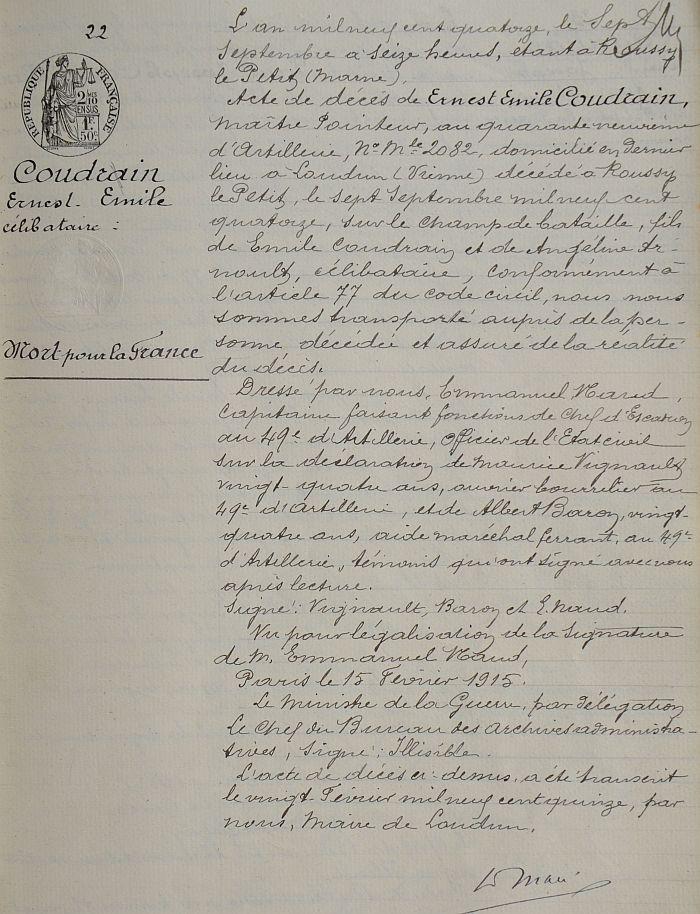 22
RÉPUBLIQUE FRANÇAISE
2/10
EN SUS
1F
50c
Coudrain
Ernest-Emile
célibataire :
Mort pour la France
L'an mil neuf cent quatorze, le Sept
Septembre à seize heures, étant à Roussy
le Petit (Marne).
Acte de décès de Ernest Emile Coudrain,
Maître Pointeur, au quarante neuvième
d'Artillerie, No Mle 2082, domicilié en dernier
lieu à Loudun (Vienne) décédé à Roussy
le Petit, le sept Septembre mil neuf cent
quatorze, sur le champ de bataille, fils
de Emile Coudrain et de Angéline Ar-
nault, célibataire, conformément à
l'article 77 du code civil, nous nous
sommes transporté auprès de la per-
sonne décédée et assuré de la réalité
du décès.
Dressé par nous, Emmanuel Naud,
Capitaine faisant fonctions de Chef d'Escadron
au 49e d'Artillerie, Officier de l'Etat civil
sur la déclaration de Maurice Vignault
vingt-quatre ans, ouvrier bourrelier au
49e d'Artillerie, et de Albert Baron, vingt-
quatre ans, aide maréchal ferrant, au 49e
d'Artillerie, témoins qui ont signé avec nous
après lecture.
Signé : Vignault, Baron et E. Naud.
Vu pour légalisation de la Signature
de M. Emmanuel Naud,
Paris le 15 Février 1915.
Le Ministre de la Guerre, par délégation
Le Chef du Bureau des Archives administra-
tives, Signé : Illisible.
L'acte de décès ci-dessus, a été transcrit
le vingt Février mil neuf cent quinze, par
nous, Maire de Loudun.